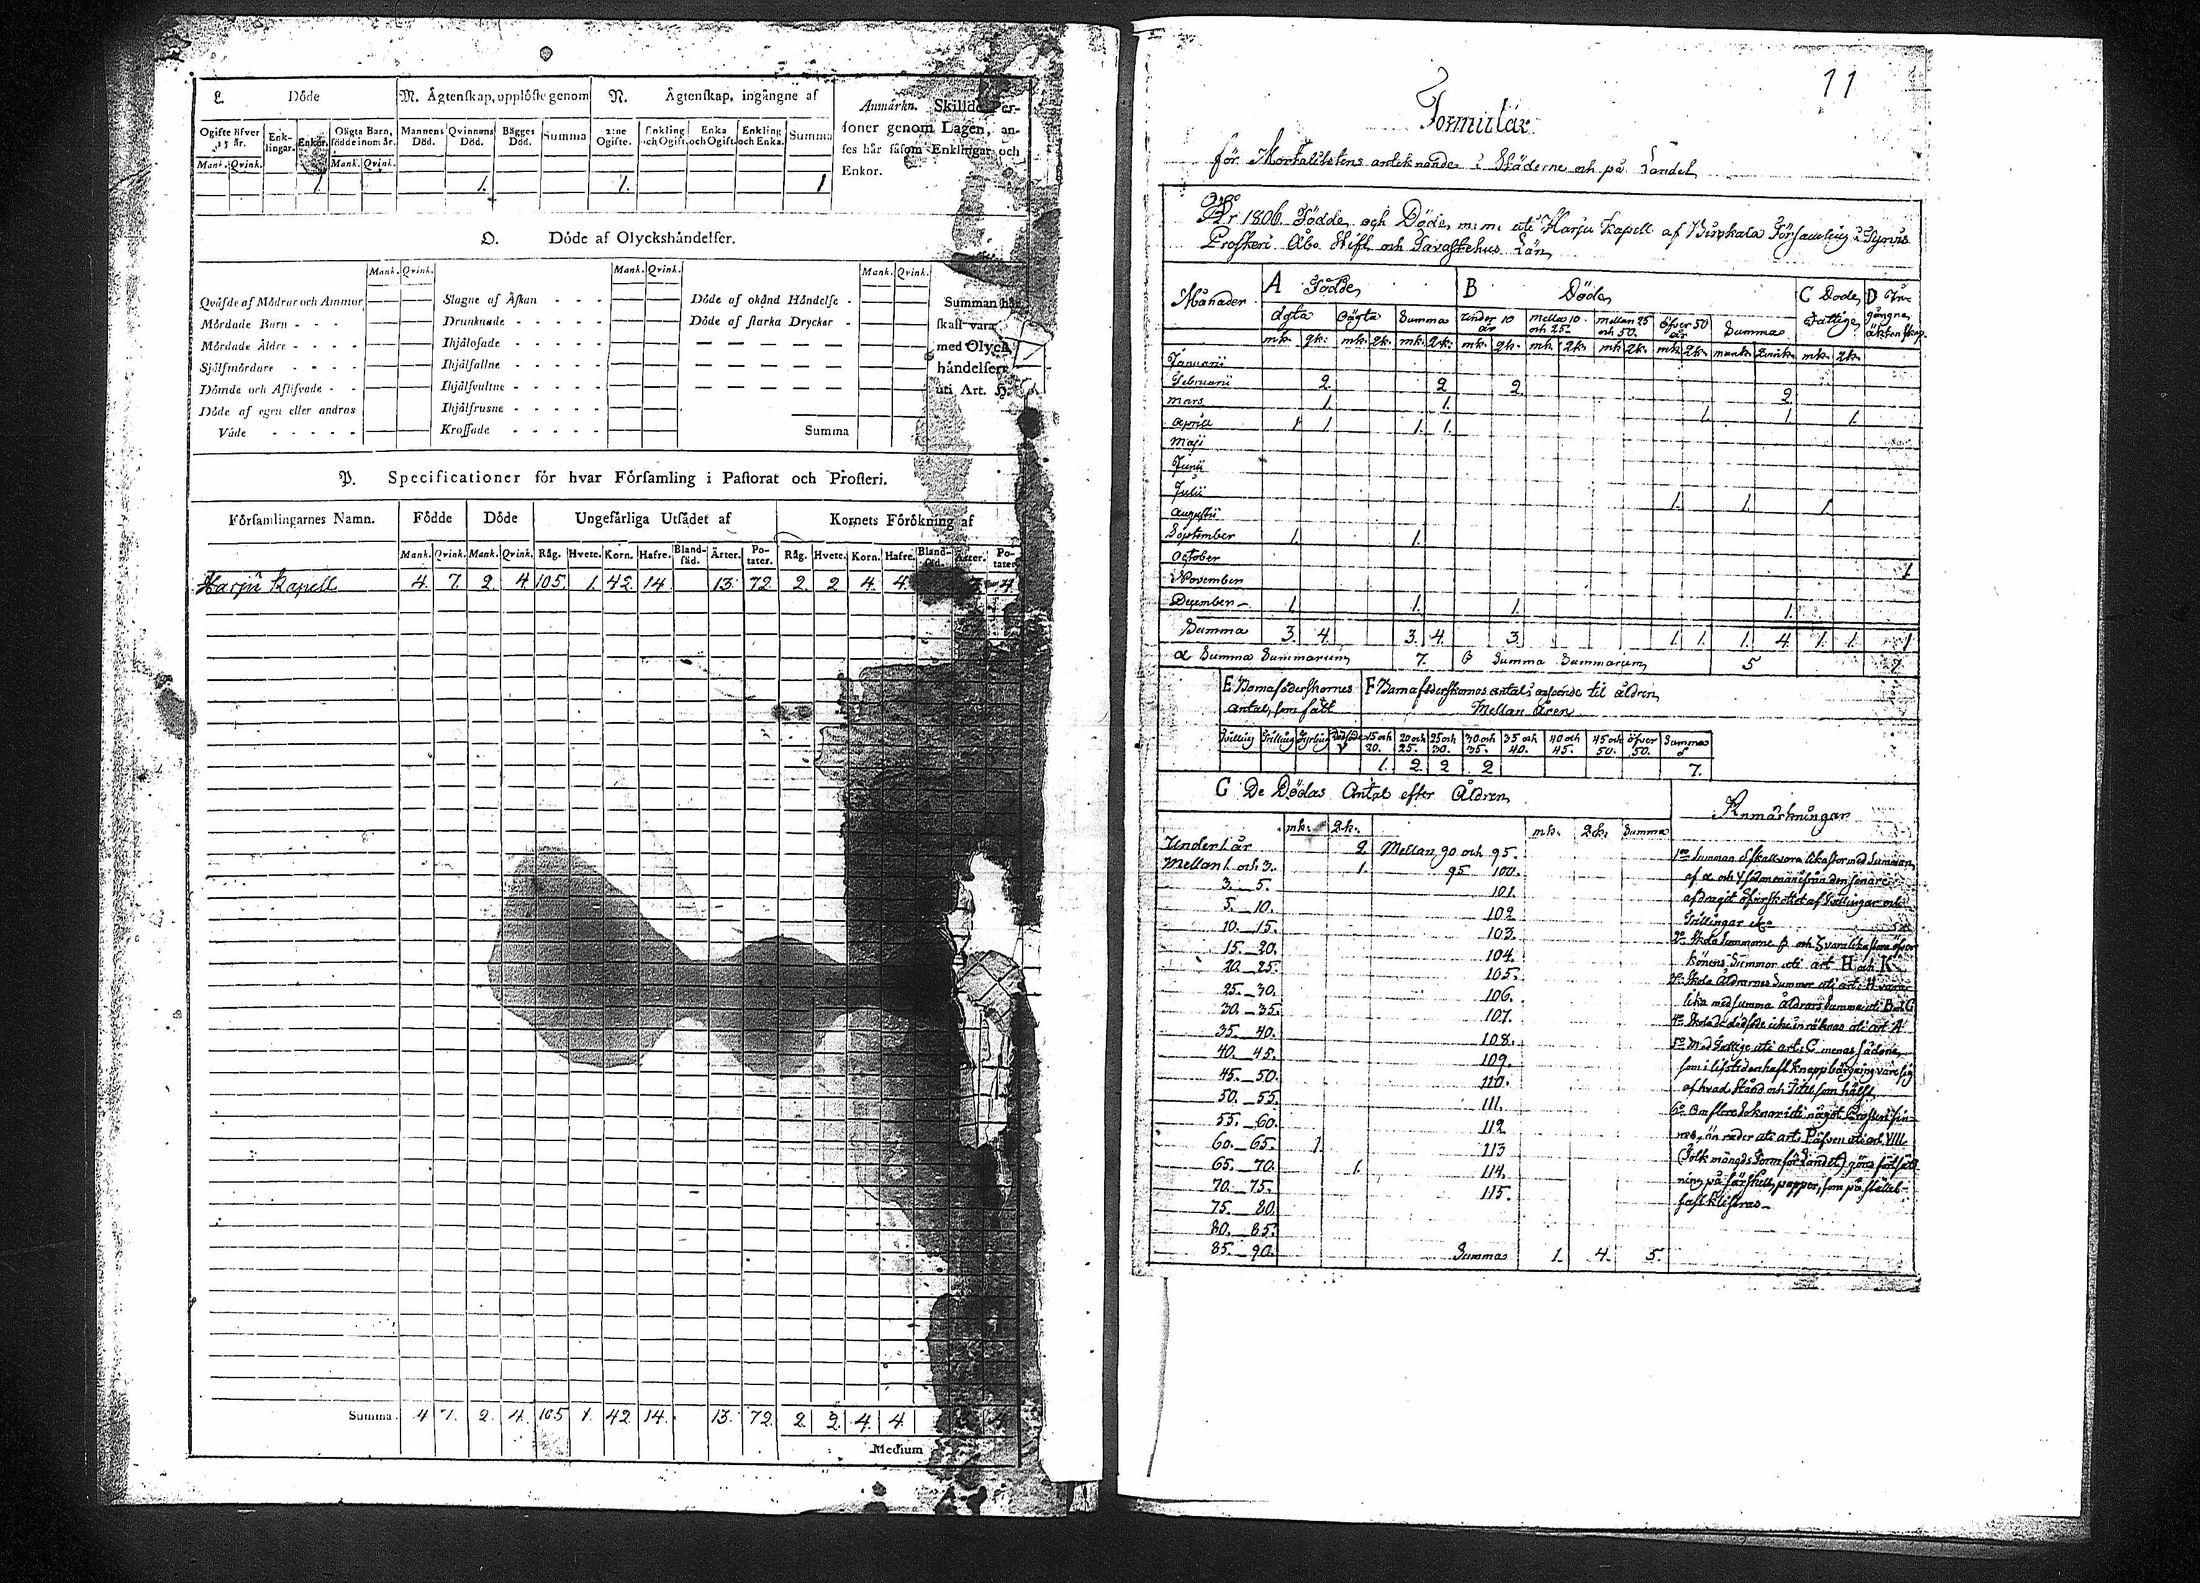 L. Döde
M. Ägtenskap, upplöste genom
N. Ägtenskap, ingångne af
Anmärkn. Skillde Per-
soner genom Lagen, an-
ses här såsom Enklingar och
Enkor.
Ogifte öfver 15 år. Enk-lingar. Enkor. Oägta Barn, födde inom år. Mannens Död. Qvinnans Död. Bägges Död. Summa 2:ne Ogifte. Enkling och Ogift. Enka och Ogift. Enkling och Enka. Summa
Mank. Qvink. Mank. Qvink.
1. 1. 1. 1
O. Döde af Olyckshändelser.
Mank. Qvink. Mank. Qvink. Mank. Qvink.
Qväfde af Mödrar och Ammor Slagne af Åskan Döde af okänd Händelse Summan här
Mördade Barn Drunknade Döde af starka Drycker skall vara
Mördade Äldre Ihjälosade med Olycks
Sjelfmördare Ihjälfallne händelser
Dömde och Aflifvade Ihjälsvultne uti Art. H.
Döde af egen eller andras Ihjälfrusne
Våde Krossade Summa
P. Specificationer för hvar Församling i Pastorat och Prosteri.
Församlingarnes Namn. Födde Döde Ungefärliga Utsädet af Kornets Förökning af
Mank. Qvink. Mank. Qvink. Råg. Hvete. Korn. Hafre. Bland-säd. Ärter. Po-tater. Råg. Hvete. Korn. Hafre. Bland-säd. Ärter. Po-tater.
Harju Kapell 4. 7. 2. 4 105. 1. 42. 14. 13. 72 2. 2 4. 4.
Summa. 4 7. 2. 4. 105 1. 42 14. 13. 72. 2. 2. 4. 4.
Medium
11
Formulär
för Mortalitetens antecknande i Städerne och på Landet
År 1806. Födde och Döde m. m. uti Harju Kapell af Birkala Församling i Tyrvis
Prosteri Åbo Stift och Tavastehus Län
Månader A Födde B Döde C Döde Fattige D Ingångne äktenskap.
ägta oägta Summa under 10 år mellan 10 och 25. mellan 25 och 50. öfver 50 år Summa
mk. qk. mk. 2k. mk. 2k. mk. qk. mk. 2k. mk. 2k. mk. 2k. mank. Qvink. mk. 2k.
Januarii
Februarii 2. 2 2.
Mars 1. 1. 2
Aprill 1 1 1. 1. 1. 1. 1.
Maji
Junii
Julii
Augustii 1. 1. 1.
September 1. 1.
October
November 1
December 1. 1. 1. 1.
Summa 3. 4. 3. 4. 3. 1. 1. 1. 4 1. 1. 1
α Summa Summarum 7. β Summa Summarum 5
E Barnaföderskornes antal, som fått
F Barnaföderskornas antal i anseende til åldren
Mellan Åren
Tvilling Trilling 15 och 20. 20 och 25. 25 och 30. 30 och 35. 35 och 40. 40 och 45. 45 och 50. öfver 50. Summa
1. 2. 2 2 7.
G De Dödas Antal efter Åldren
Anmärkningar
mk. 2k. mk. 2k. Summa
Under 1 år 2 Mellan 90 och 95.
Mellan 1 och 3. 1. 95 100.
3. 5. 101.
5. 10. 102
10. 15. 103.
15. 20. 104.
20. 25. 105.
25. 30. 106.
30. 35. 107.
35. 40. 108.
40. 45. 109.
45. 50. 110.
50. 55. 111.
55. 60. 112
60. 65. 1. 113
65. 70. 1. 114.
70. 75. 115.
75. 80.
80. 85.
85. 90. Summa 1. 4. 5.
1mo Summan δ skall vara lika stor med Summan
af α och γ sedan man ifrån den senare
afdragit öfverskottet af Tvillingar och
Trillingar etc
2o Skola Summorne β och ζ vara lika stora öfver
könens Summor uti art H och K
3o Skola Åldrarnes Summor uti art. H vara
lika med samma Åldrars Summa uti B och G
4o Skola de dödföde icke inräknas uti art A
5o Med Fattige uti art: C menas sådane,
som i lifstiden haft knapp bärgning vare sig
af hvad Stånd och Titel som hälst
6o Om flere Socknar uti något Prosteri fin-
nes, än rader uti art: P äfven uti art VIII.
(Folk mängds Form för Landet) göres fortsätt
ning på särskilt papper, som på stället
fast klistras